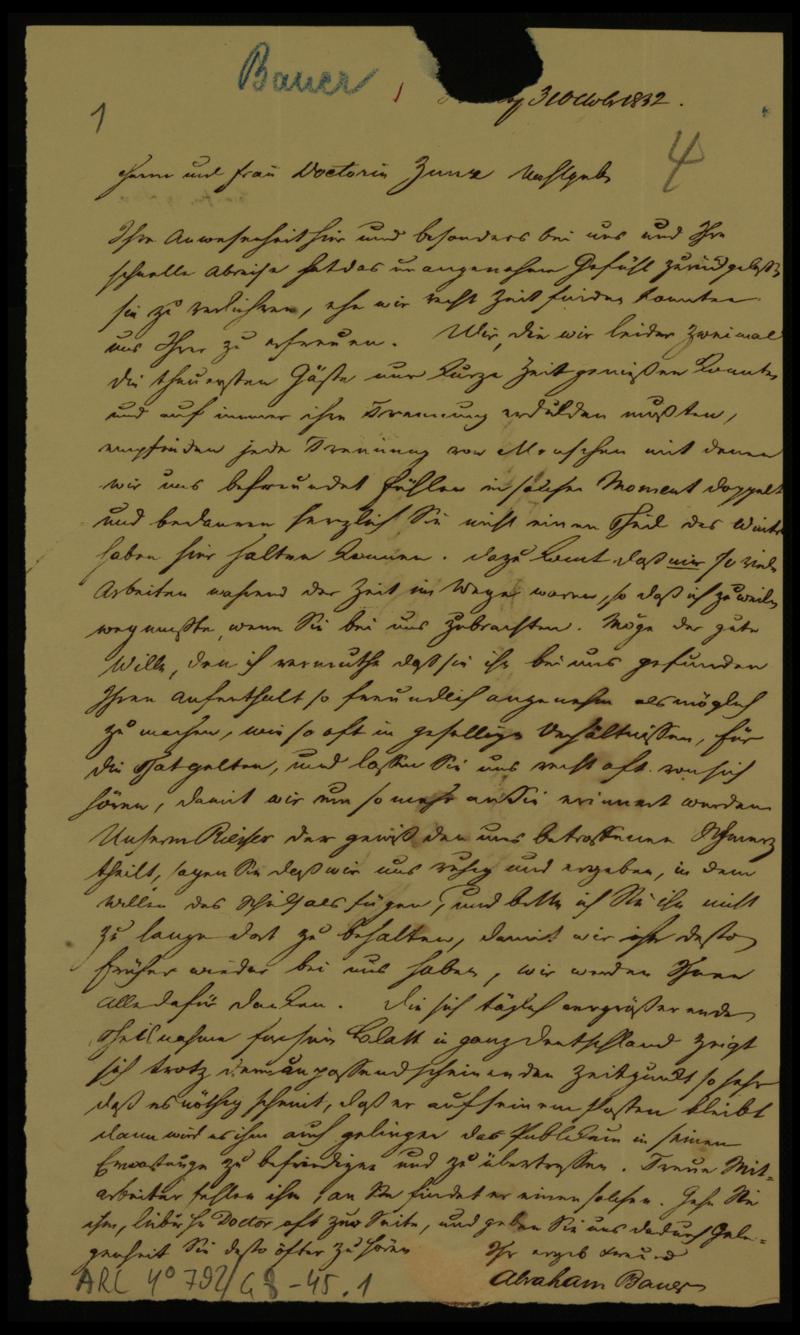 Bauer
1
1
31 Octob 1832.
4
Herrn und Frau Doctorin Zunz Wohlgeb
Ihre Anwesenheit hier und besonders bei uns und Ihre
schnelle Abreise hat das unangenehme Gefühl zurückgelaßen
sie zu verliehren, ehe wir recht Zeit finden konnten
uns Ihrer zu erfreuen. Wir, die wir leider zweimal
die theuersten Gäste nur kurze Zeit genießen konnten
und auf immer ihre Trennung erdulden mußten,
empfinden jede Trennung von Menschen mit denen
wir uns befreundet fühlen in solchen Moment doppelt
und bedauern herzlich Sie nicht einen Theil des Winters
haben hier halten konnen. dazu komt daß mir so viele
Arbeiten wahrend der Zeit im Wege waren, so daß ich zuweilen
weg mußte, wenn Sie bei uns zubrachten. Möge der gute
Wille, den ich vermuthe daß sie ihn bei uns gefunden
Ihren Aufenthalt so freundlich angenehm als möglich
zu machen, wie so oft in geselligen Verhältnissen, für
die That gelten, und lassen Sie uns recht oft von sich
hören, damit wir um so mehr an Sie erinnert werden
Unserm Riesser der gewiß den uns betroffenen Schmerz
theilt, sagen Sie daß wir uns ruhig und ergeben, in dem
willen des Schiksals fügen, und bitte ich Sie ihn nicht
zu lange dort zu behalten, damit wir ihn desto
früher wieder bei uns haben, wir werden Ihnen
alle dafür danken. Die sich täglich vergrößerende
Theilnahme für sein Blatt in ganz Deutschland zeigt
sich trotz dem unpassend scheinenden Zeitpunkt so sehr
daß es nöthig scheint, daß er auf seinem Posten bleibt
dann wird es ihm auch gelingen das Publikum in seinen
Erwartungen zu befriedigen und zu übertreffen. Treue Mit-
arbeiter fehlen ihm, an Sie findet er einen solchen. Gehe Sie
ihm, lieber Hr Doctor oft zur Seite, und geben Sie uns dadurch Gele-
genheit Sie desto öfter zu hören
Ihr ergeb Freund
Abraham Bauer
ARC 4° 792/G 8-45.1